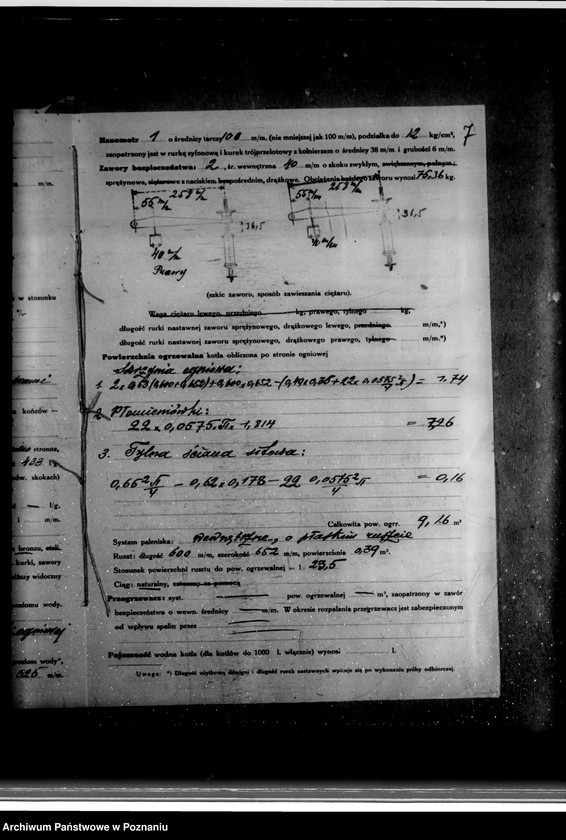 7
Manometr 1 o średnicy tarczy 100 m/m. (nie mniejszej jak 100 m/m), podziałka do 12 kg/cm²,
zaopatrzony jest w rurkę syfonową i kurek trójprzelotowy z kołnierzem o średnicy 38 m/m i grubości 6 m/m.
Zawory bezpieczeństwa: 2, śr. wewnętrzna 40 m/m o skoku zwykłym, zwiększonym, pełnym,
sprężynowe, ciężarowe z naciskiem bezpośrednim, drążkowe. Obciążenie każdego zaworu wynosi 75,36 kg.
258 m/m
55 m/m
36,5
40 m/m
Prawy
258 m/m
55 m/m
36,5
(szkic zaworu, sposób zawieszania ciężaru).
Waga ciężaru lewego, przedniego kg, prawego, tylnego kg,
długość rurki nastawnej zaworu sprężynowego, drążkowego lewego, przedniego. m/m,*)
długość rurki nastawnej zaworu sprężynowego, drążkowego prawego, tylnego m/m.*)
Powierzchnia ogrzewalna kotła obliczona po stronie ogniowej
Skrzynia ogniowa:
1. = 1.74
2. Płomieniówki:
22 x 0,0575 x π x 1,814 = 7,26
3. Tylna ściana sitowa:
0,66² π/4 – 0,62 x 0,178 – 22 0,0575² π/4 = 0,16
Całkowita pow. ogrz. 9,16 m²
System paleniska: wewnętrzne, o płaskim ruszcie
Ruszt: długość 600 m/m, szerokość 652 m/m, powierzchnia 0,39 m².
Stosunek powierzchni rusztu do pow. ogrzewalnej – 1: 23,5
Ciąg: naturalny, sztuczny za pomocą
Przegrzewacz: syst. pow. ogrzewalnej — m², zaopatrzony w zawór
bezpieczeństwa o wewn. średnicy — m/m. W okresie rozpalania przegrzewacz jest zabezpieczonym
od wpływu spalin przez
Pojemność wodna kotła (dla kotłów do 1000 l. włącznie) wynosi l.
Uwaga: *) Długość użytkową dźwigni i długość rurek nastawnych wpisuje się po wykonaniu próby odbiorczej.
m/m.
w stosunku
końców —
stronne,
skokach)
l/g,
m/m.
bronzu, stali.
kurki, zawory
widoczny
poziomu wody.
ogniowej
poziom wody",
525 m/m.
Archiwum Państwowe w Poznaniu